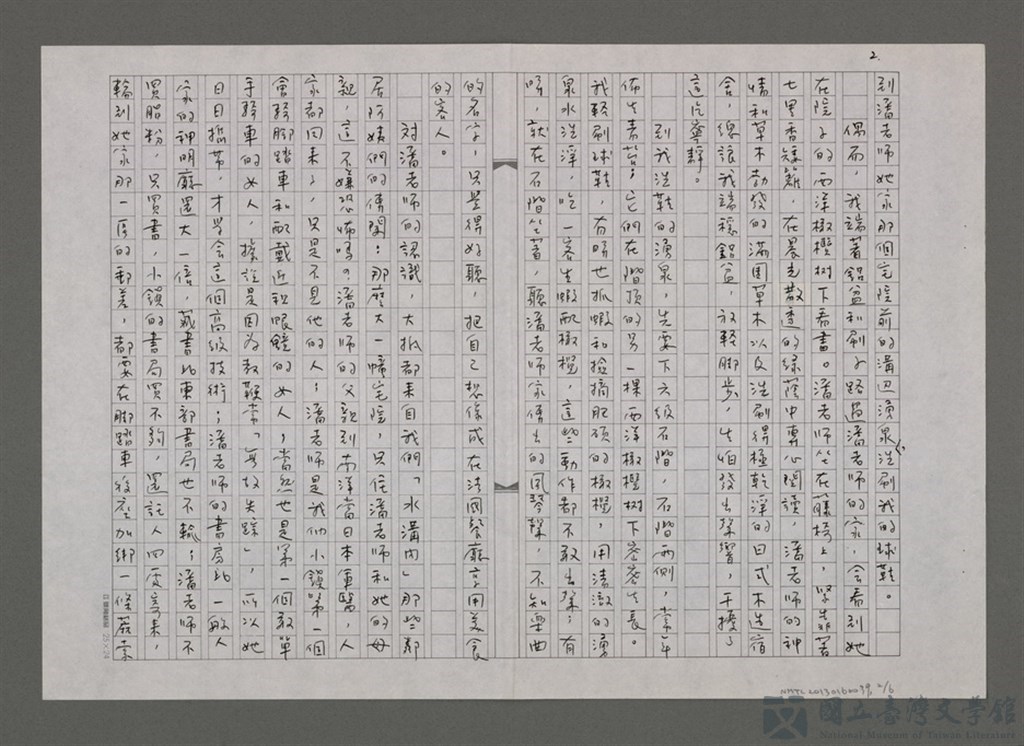 2.
到潘老師她家那個宅院前的溝边湧泉洗刷我的球鞋。
偶而，我端著鋁盆和刷子路過潘老師的家，会看到她
在院子的西洋橄欖树下看書。潘老師坐在藤椅上，緊靠著
七里香矮籬，在晨光散透的綠蔭中專心閱讀，潘老師的神
情和草木勃發的滿園草木以及洗刷得極乾淨的日式木造宿
舍，總讓我端穩鋁盆，放輕脚步，生怕發出聲響，干擾了
這片寧靜。
到我洗鞋的湧泉，先要下六級石階，石階兩側，常年
佈生青苔；它們在階頂的另一棵西洋橄欖樹下密密生長。
我輕刷球鞋，有時也抓蝦和撿摘肥碩的橄欖，用清澈的湧
泉水洗淨，吃一客生蝦配橄欖，這些動作都不敢出聲；有
時，就在石階坐著，聽潘老師家傳出的風琴聲，不知樂曲
的名字，只覺得好聽，把自己想像成在法國餐廳享用美食
的客人。
對潘老師的認識，大抵都來自我們「水溝內」那些鄰
居阿姨們的傳聞：那麼大一幢宅院，只住潘老師和她的母
親，這不嫌恐怖嗎？潘老師的父親到南洋當日本軍醫，人
家都回來了，只是不見他的人；潘老師是我们小鎮第一個
會騎脚踏車和配戴近視眼鏡的女人；當然也是第一個敢單
手騎車的女人，據說是因為教鞭常「無故失蹤」，所以她
日日攜帶，才学会這個高級技術；潘老師的書房比一般人
家的神明廳還大一倍，藏書比東部書局也不輸；潘老師不
買胭粉，只買書，小鎮的書局買不夠，還託人四處寄來，
輪到她家那一區的郵差，都要在脚踏車後座加綁一條麻索
25×24
NMTL20130160039, 2/6
國立臺灣文學館
National Museum of Taiwan Literature